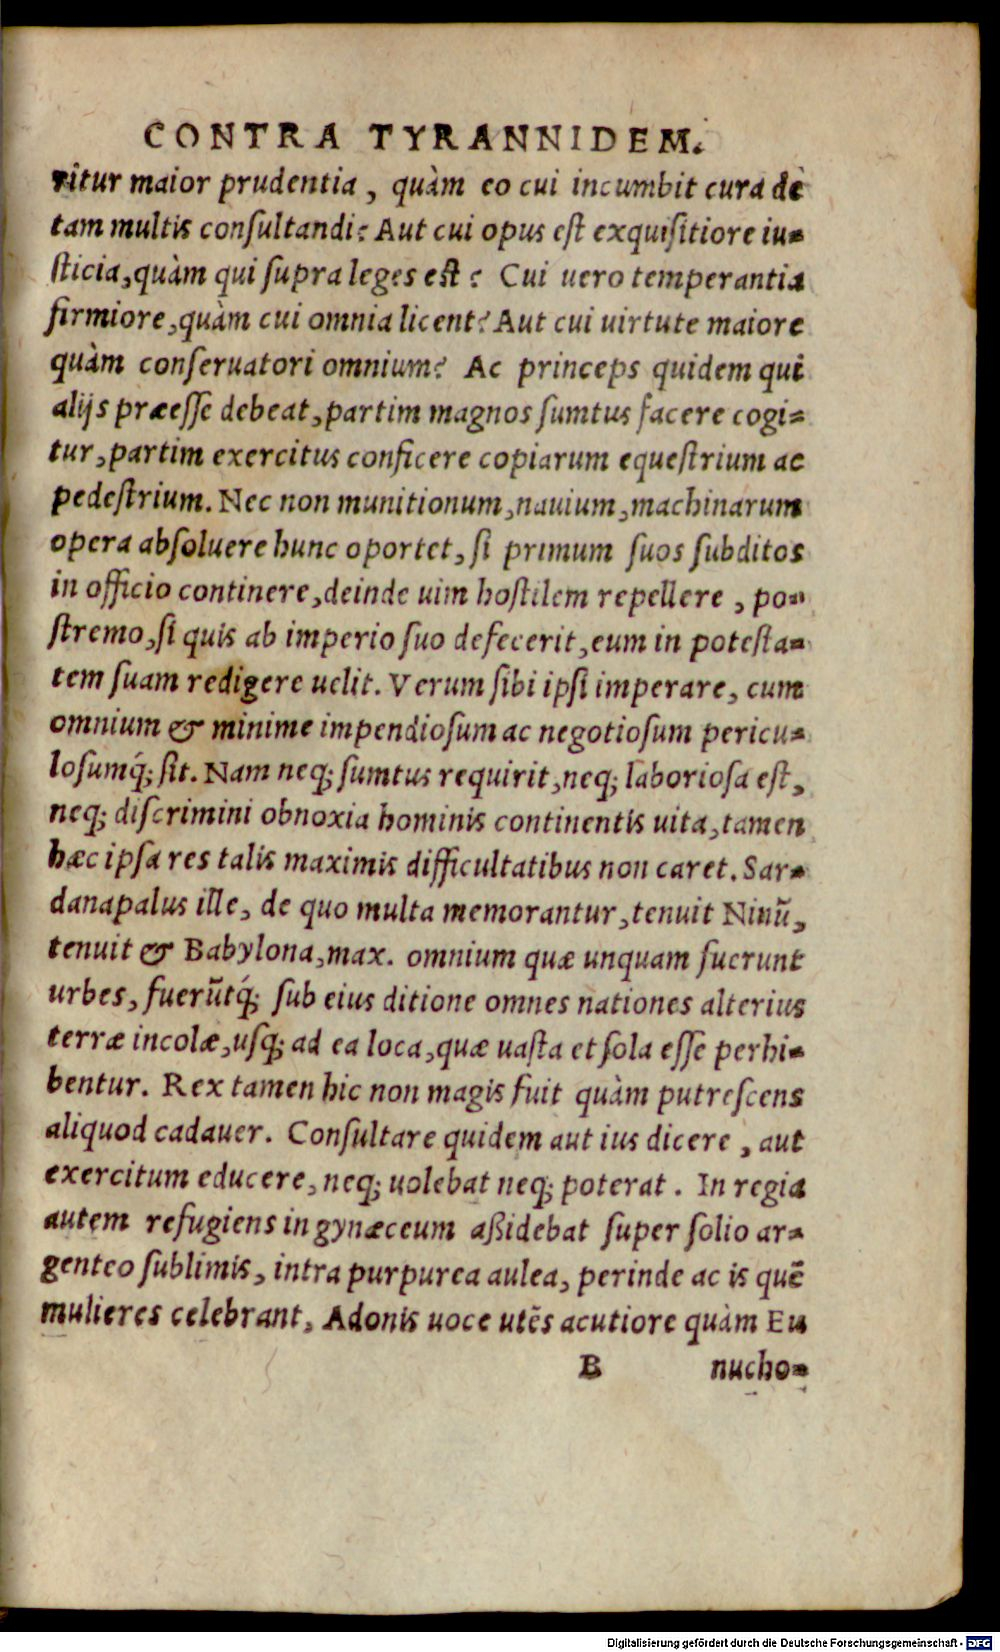 CONTRA TYRANNIDEM.
ritur maior prudentia, quàm eo cui incumbit cura de
tam multis consultandi? Aut cui opus est exquisitiore iu-
sticia, quàm qui supra leges est? Cui uero temperantia
firmiore, quàm cui omnia licent? Aut cui uirtute maiore
quàm conseruatori omnium? Ac princeps quidem qui
alijs præesse debeat, partim magnos sumtus facere cogi-
tur, partim exercitus conficere copiarum equestrium ac
pedestrium. Nec non munitionum, nauium, machinarum
opera absoluere hunc oportet, si primum suos subditos
in officio continere, deinde uim hostilem repellere, po-
stremo, si quis ab imperio suo defecerit, eum in potesta-
tem suam redigere uelit. Verum sibi ipsi imperare, cum
omnium & minime impendiosum ac negotiosum pericu-
losumq́; sit. Nam neq; sumtus requirit, neq; laboriosa est,
neq; discrimini obnoxia hominis continentis uita, tamen
hæc ipsa res talis maximis difficultatibus non caret. Sar-
danapalus ille, de quo multa memorantur, tenuit Ninũ,
tenuit & Babylona, max. omnium quæ unquam fuerunt
urbes, fuerũtq́; sub eius ditione omnes nationes alterius
terræ incolæ, usq; ad ea loca, quæ uasta et sola esse perhi-
bentur. Rex tamen hic non magis fuit quàm putrescens
aliquod cadauer. Consultare quidem aut ius dicere, aut
exercitum educere, neq; uolebat neq; poterat. In regia
autem refugiens in gynæceum aßidebat super solio ar-
genteo sublimis, intra purpurea aulea, perinde ac is quẽ
mulieres celebrant, Adonis uoce utẽs acutiore quàm Eu
B nucho-
Digitalisierung gefördert durch die Deutsche Forschungsgemeinschaft - DFG